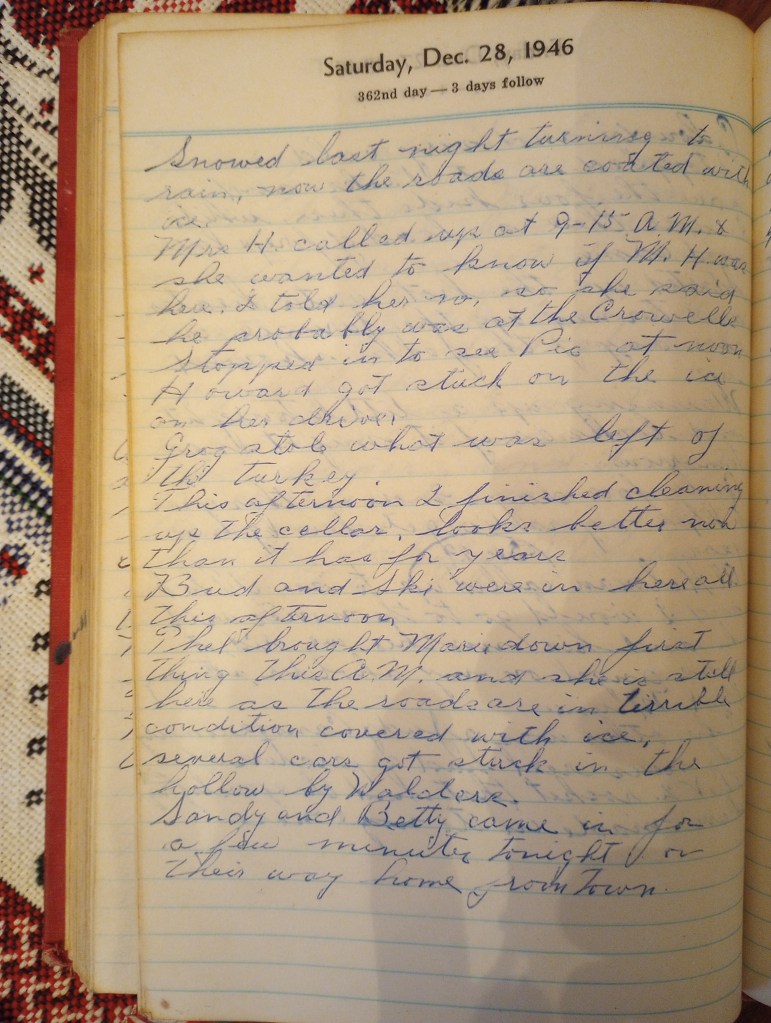 Saturday, Dec. 28, 1946
362nd day — 3 days follow
Snowed last night turning to
rain, now the roads are coated with
ice.
Mrs H called up at 9-15 A.M. &
she wanted to know if M. H was
here. I told her no, so she said
he probably was at the Crowells
Stopped in to see Pic at noon
Howard got stuck on the ice
on her drive.
Greg stole what was left of
the turkey.
This afternoon I finished cleaning
up the cellar, looks better now
than it has for years
Bud and Ski were in here all
this afternoon
Phel brought Marie down first
thing this A.M. and she is still
here as the roads are in terrible
condition covered with ice,
several cars got stuck in the
hollow by
Sandy and Betty came in for
a few minutes tonight on
their way home from town.